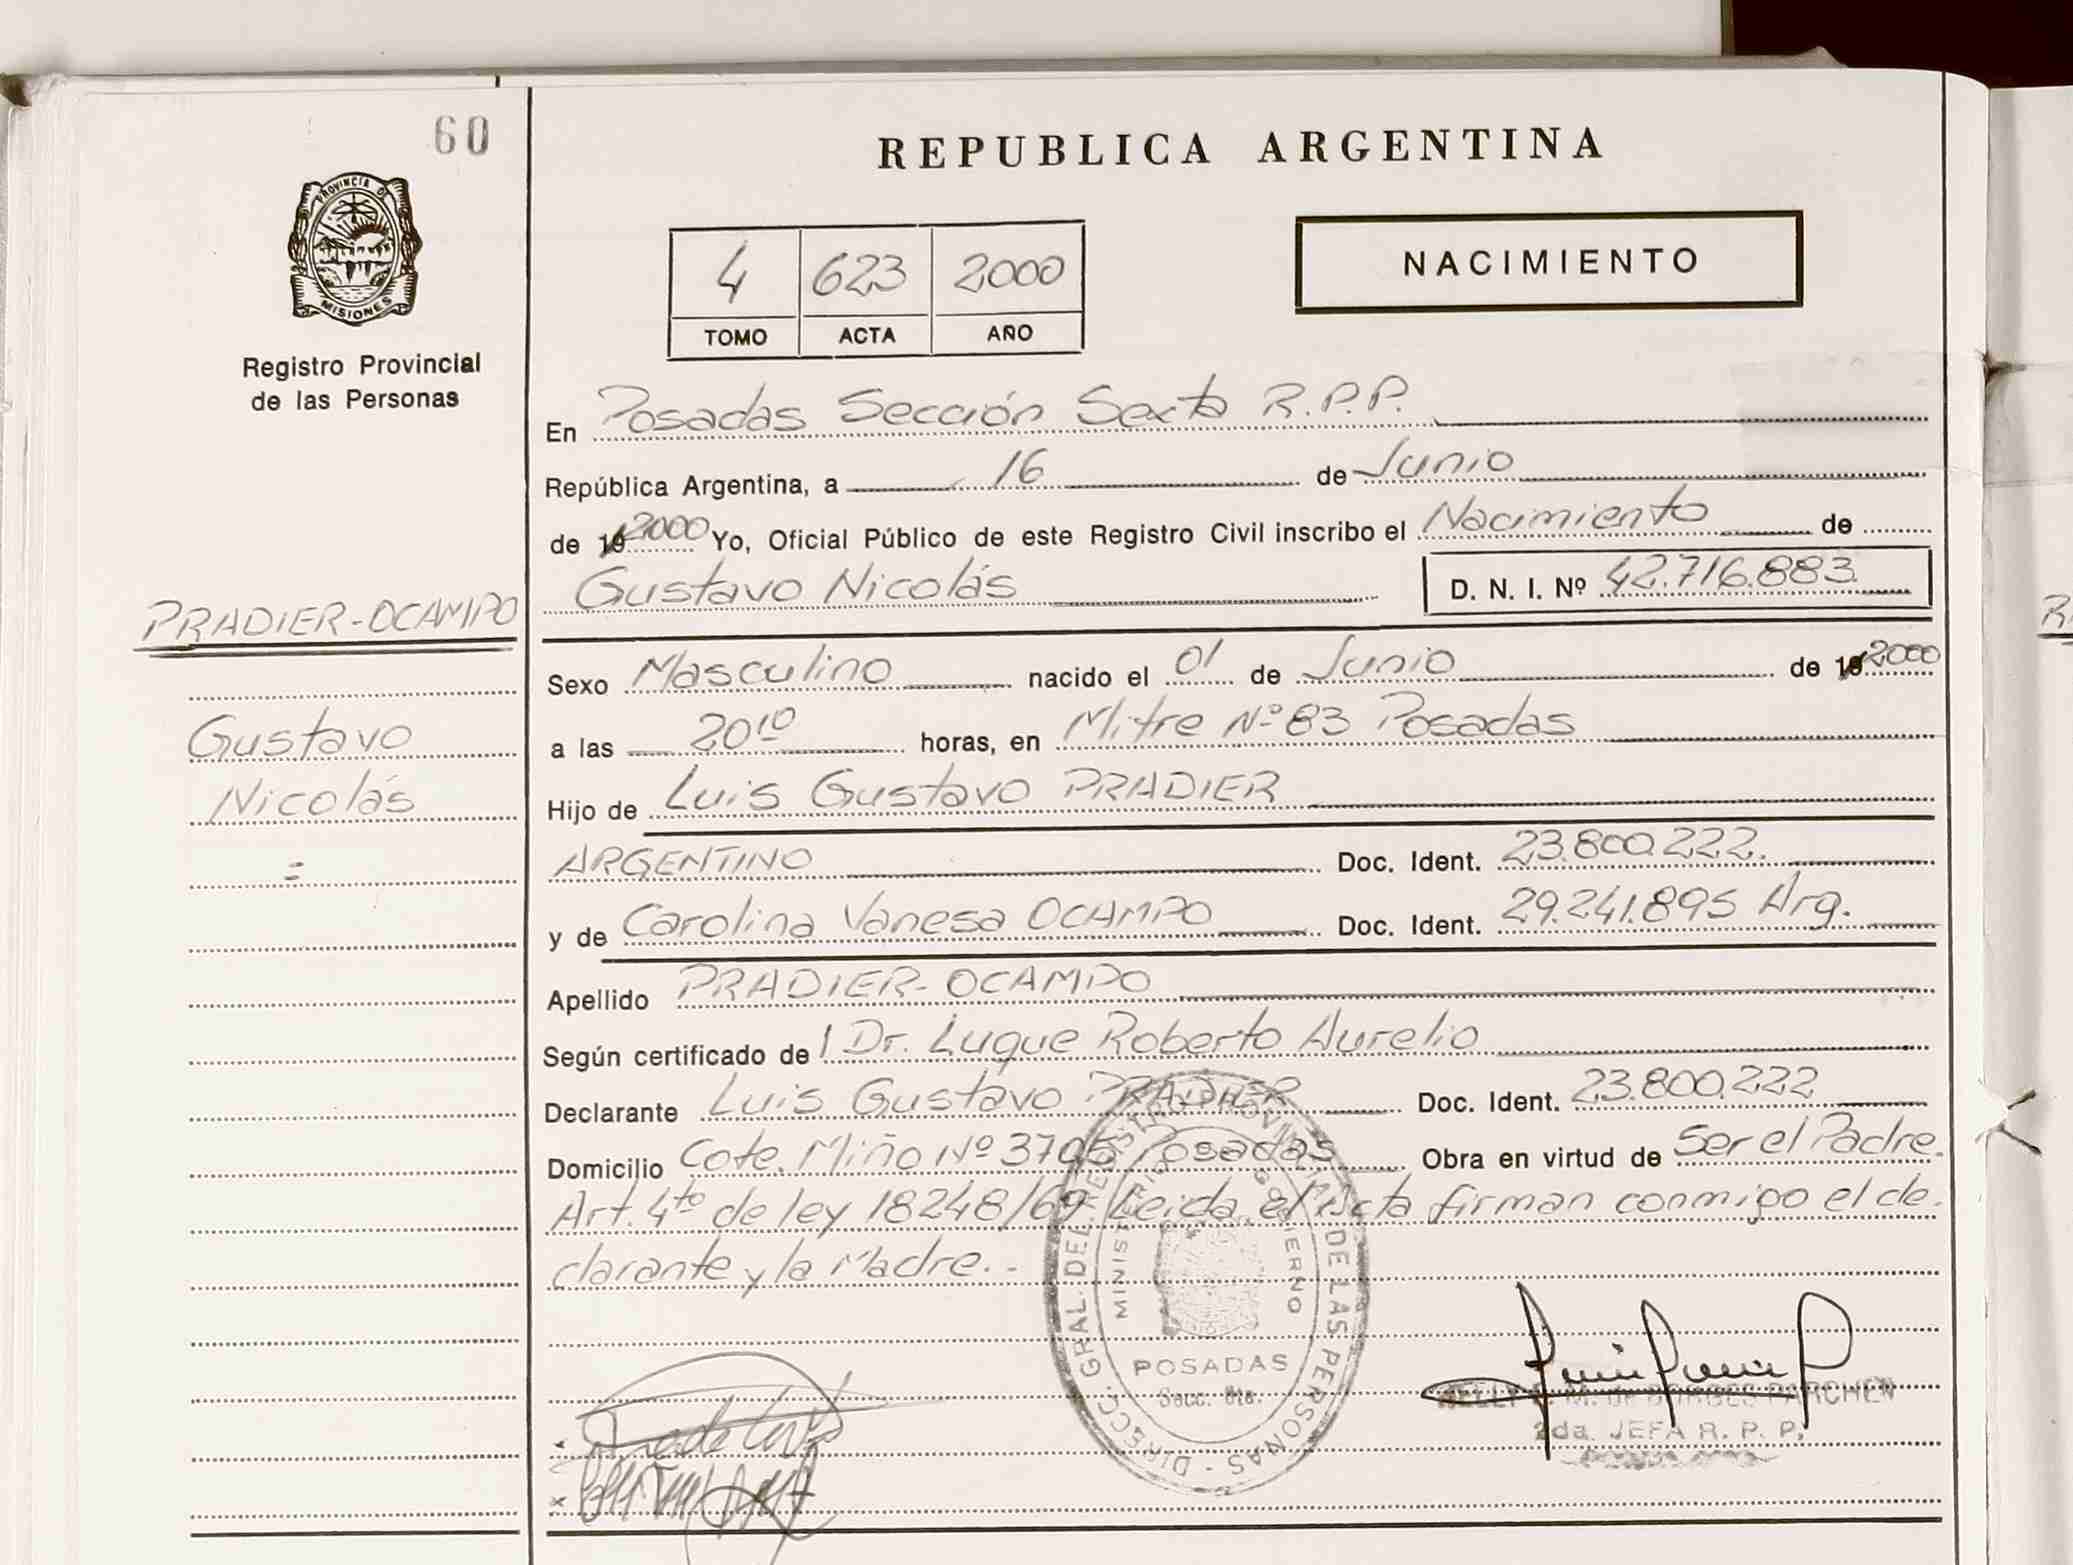 60
REPUBLICA ARGENTINA
PROVINCIA DE
MISIONES
Registro Provincial
de las Personas
4 623 2000
TOMO ACTA AÑO
NACIMIENTO
En Posadas Sección Sexta R.P.P.
República Argentina, a 16 de Junio
de 19 2000 Yo, Oficial Público de este Registro Civil inscribo el Nacimiento de
Gustavo Nicolás D. N. I. Nº 42.716.883.
PRADIER-OCAMPO
Gustavo
Nicolás
=
Sexo Masculino nacido el 01 de Junio de 19 2000
a las 20¹⁰ horas, en Mitre Nº 83 Posadas
Hijo de Luis Gustavo PRADIER
ARGENTINO Doc. Ident. 23.800.222.
y de Carolina Vanesa OCAMPO Doc. Ident. 29.241.895 Arg.
Apellido PRADIER-OCAMPO
Según certificado de Dr. Luque Roberto Aurelio
Declarante Luis Gustavo PRADIER Doc. Ident. 23.800.222
Domicilio Cote. Miño Nº 3705 Posadas Obra en virtud de Ser el Padre.
Art. 4to de ley 18248/69 Leida el Acta firman conmigo el de-
clarante y la Madre.-
DIRECC. GRAL. DEL REGISTRO PROVINCIAL DE LAS PERSONAS
MINISTERIO GOBIERNO
POSADAS
Secc. 6ta.
PARCHEN
2da. JEFA R. P. P.